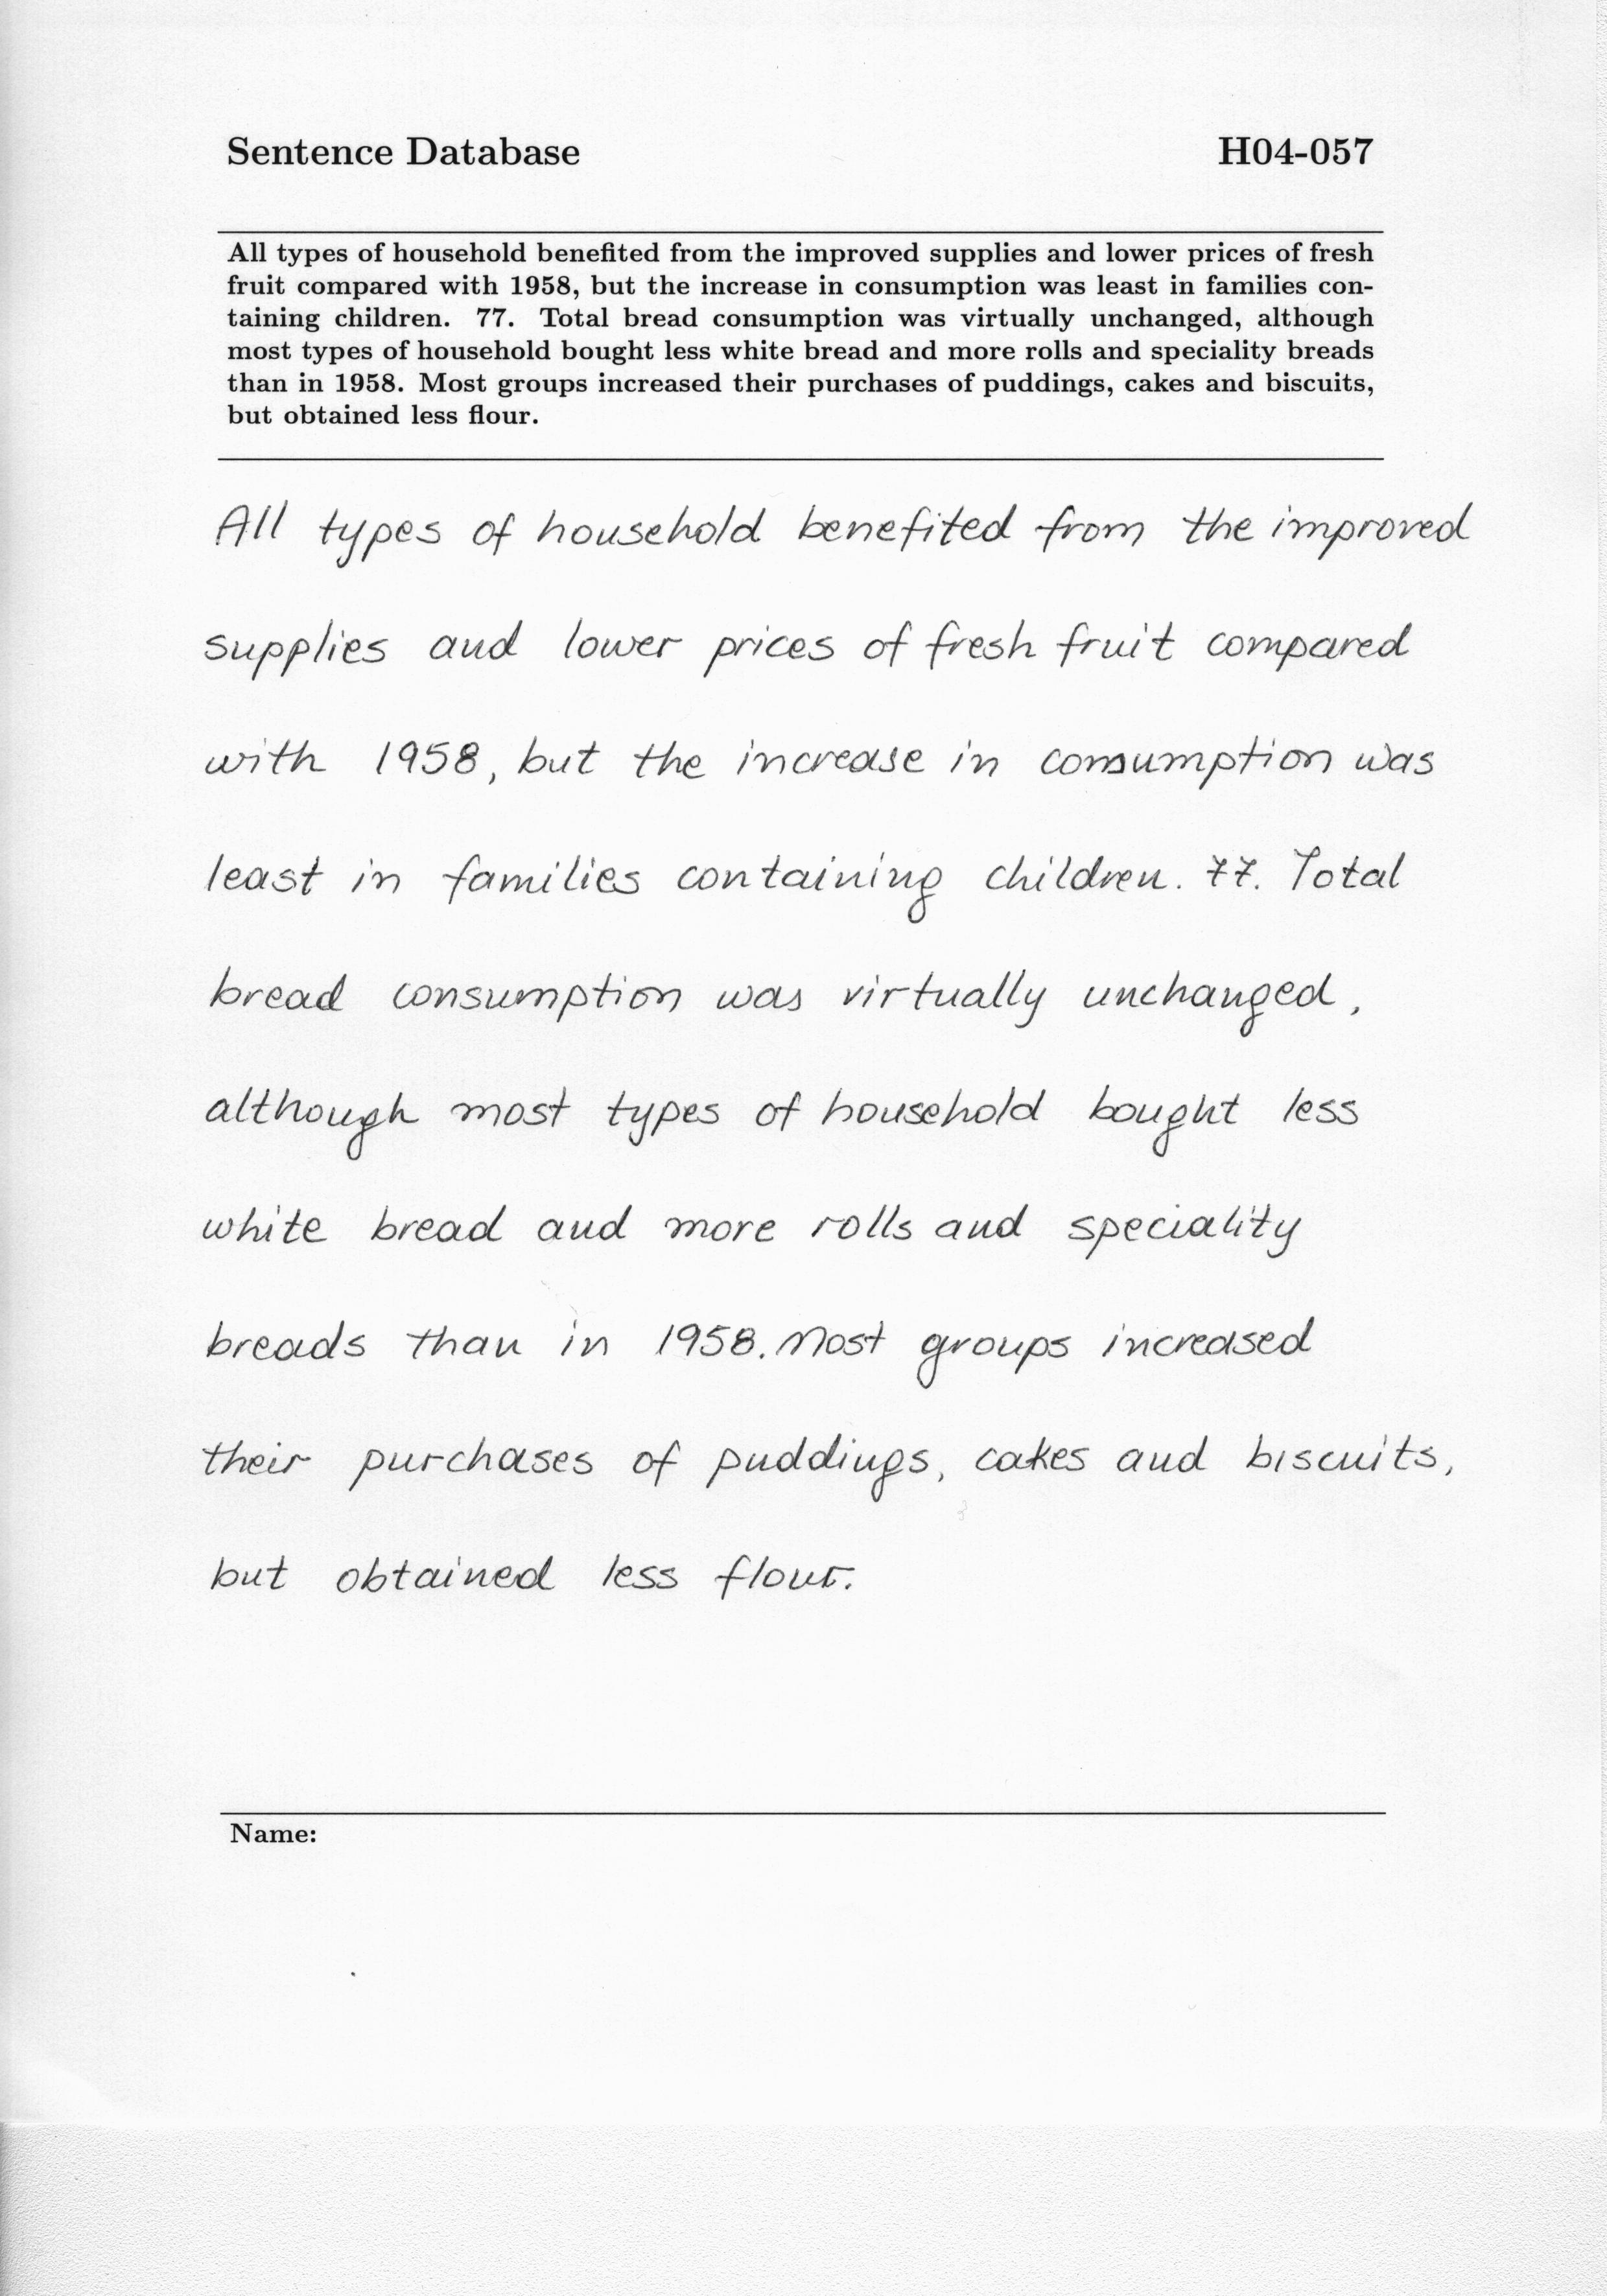 Sentence Database H04-057
All types of household benefited from the improved supplies and lower prices of fresh
fruit compared with 1958, but the increase in consumption was least in families con-
taining children. 77. Total bread consumption was virtually unchanged, although
most types of household bought less white bread and more rolls and speciality breads
than in 1958. Most groups increased their purchases of puddings, cakes and biscuits,
but obtained less flour.
All types of household benefited from the improved
supplies and lower prices of fresh fruit compared
with 1958, but the increase in consumption was
least in families containing children. 77. Total
bread consumption was virtually unchanged,
although most types of household bought less
white bread and more rolls and speciality
breads than in 1958. Most groups increased
their purchases of puddings, cakes and biscuits,
but obtained less flour.
Name: